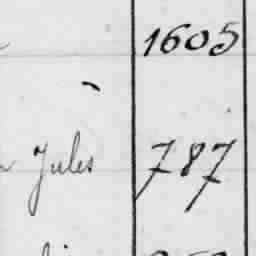 1605
Jules 787